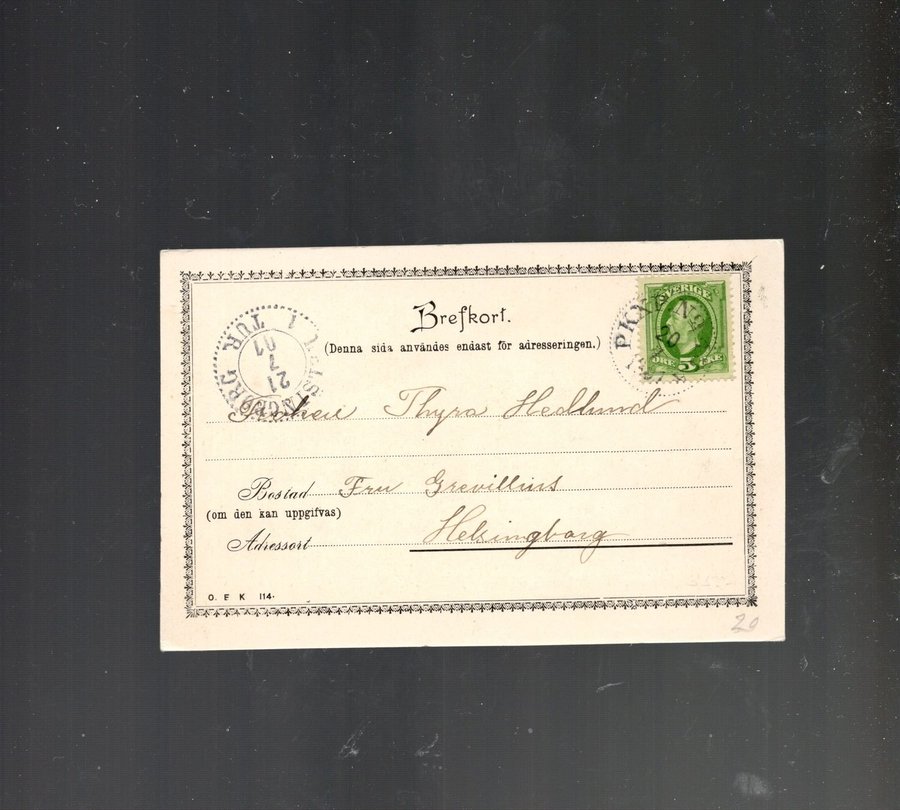 Brefkort.
(Denna sida användes endast för adresseringen.)
SVERIGE
5
ÖRE ÖRE
PKXP No
20
HELSINGBORG
21
7
01
1 TUR
Fröken Thyra Hedlund
Bostad Fru Grevillius
(om den kan uppgifvas)
Adressort Helsingborg
O. F K 114.
20